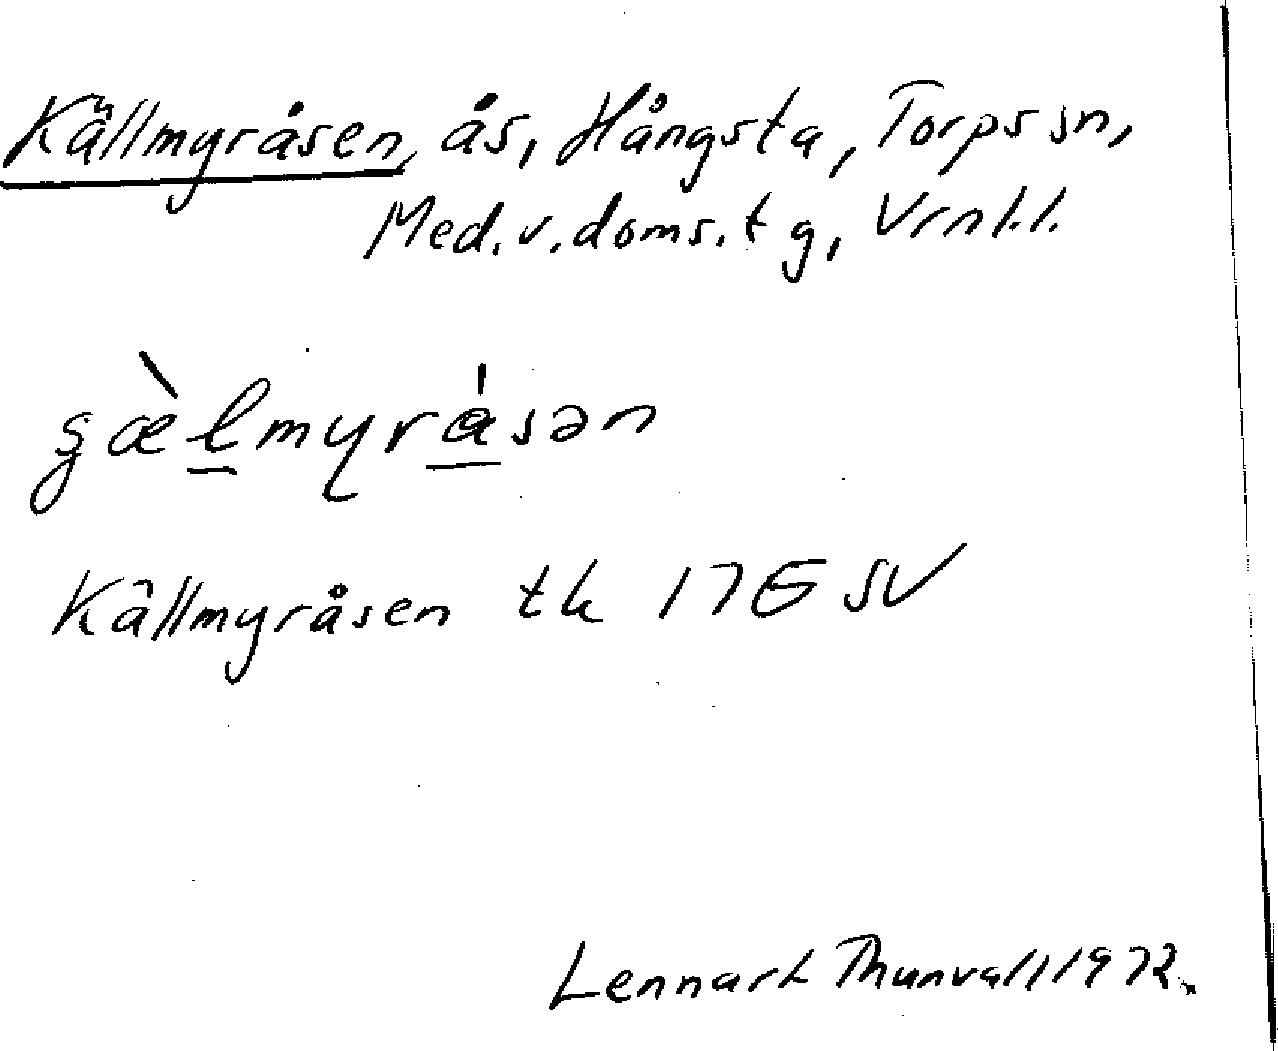 Källmyråsen, ås, Hångsta, Torps sn,
Med. v. doms. tg, Vrnl. l.
Källmyråsen tk 17E SV
Lennart Thunvall 1972.